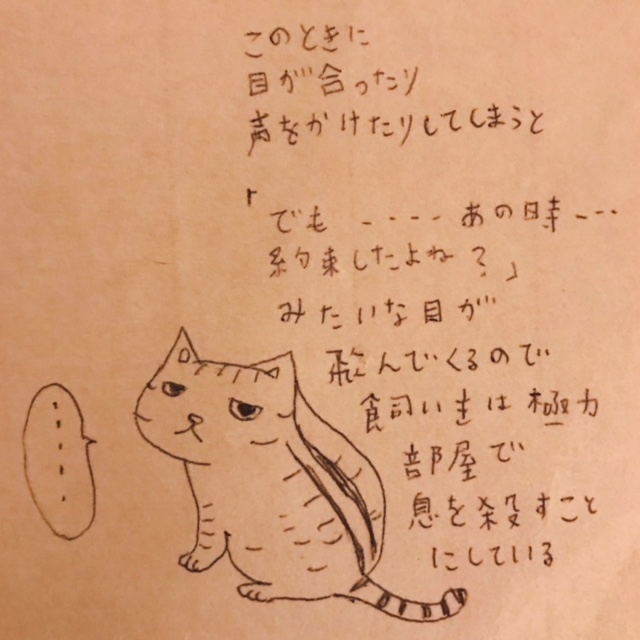 このときに
目が合ったり
声をかけたりしてしまうと
「でも ----- あの時---
約束したよね？」
みたいな目が
飛んでくるので
飼い主は極力
部屋で
息を殺すこと
にしている
.....